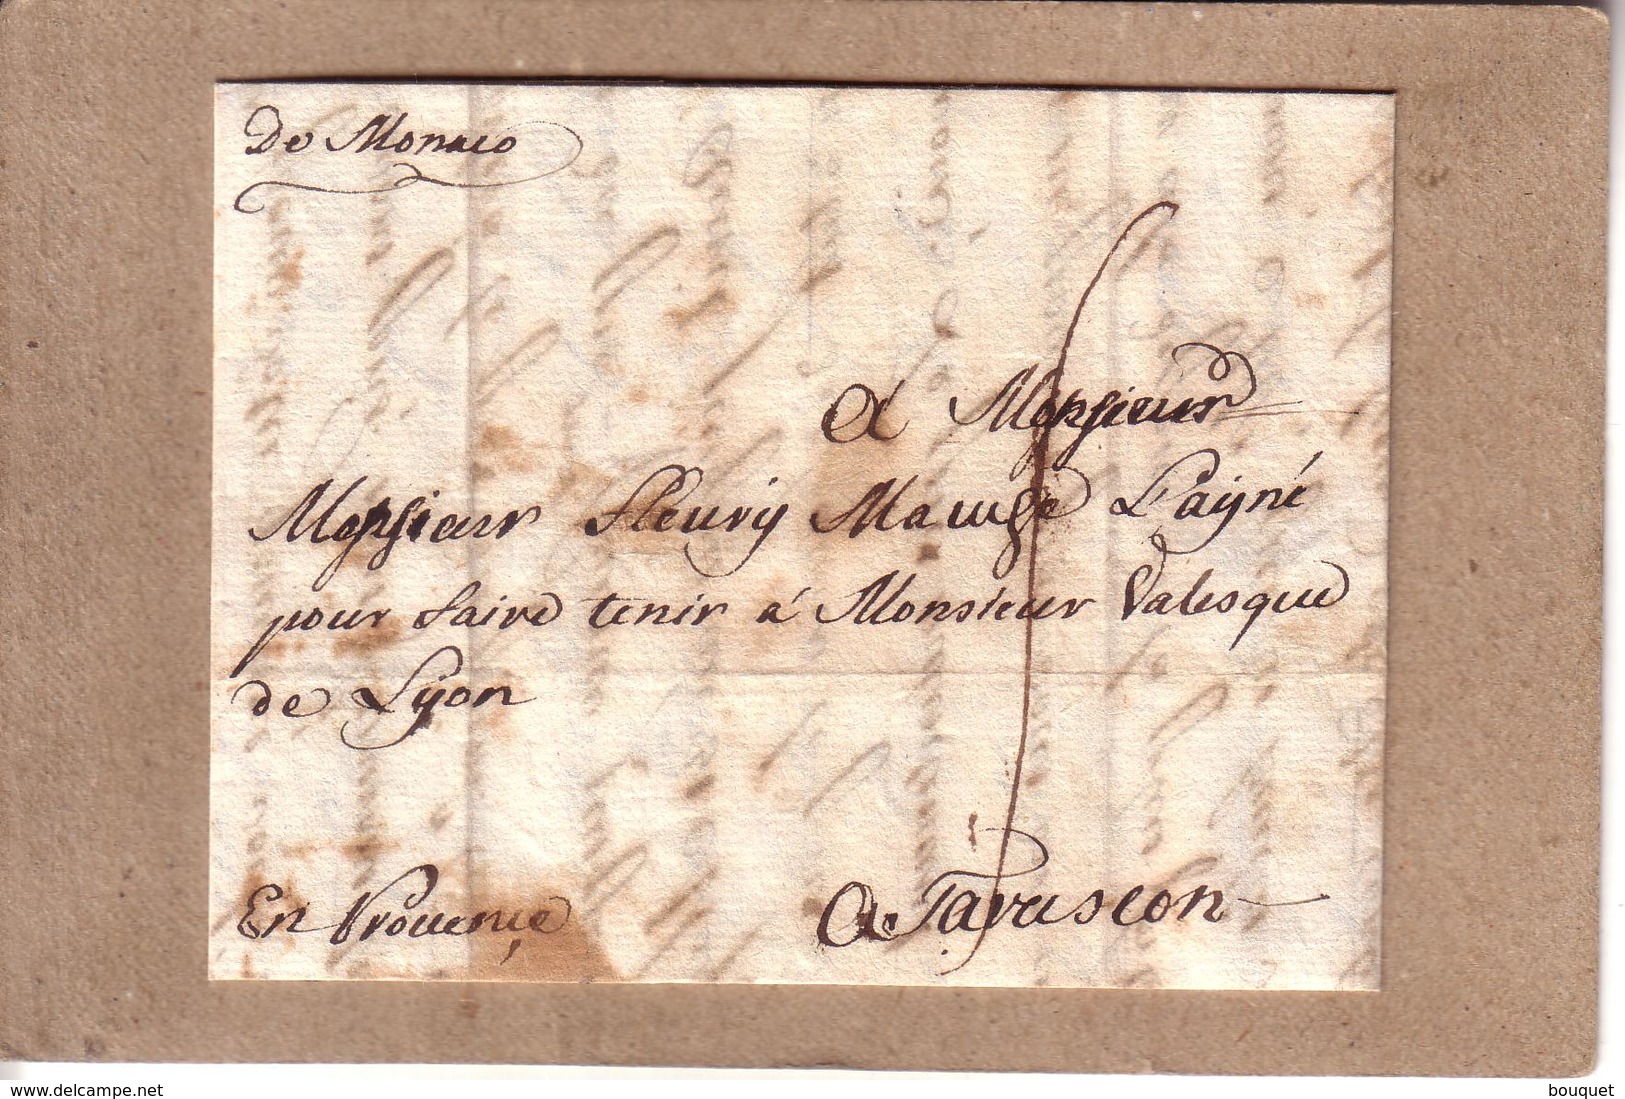 De Monaco
A Monsieur
Monsieur Fleury Mauge L'ayné
pour faire tenir à Monsieur Valesque
de Lyon
En Provence
A Tarascon
www.delcampe.net
bouquet